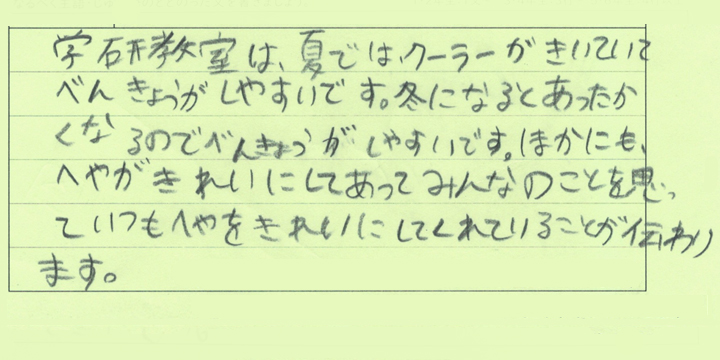 学研教室は、夏では、クーラーがきいていて
べんきょうがしやすいです。冬になるとあったか
くなるのでべんきょうがしやすいです。ほかにも、
へやがきれいにしてあってみんなのことを思っ
ていつもへやをきれいにしてくれていることが伝わり
ます。